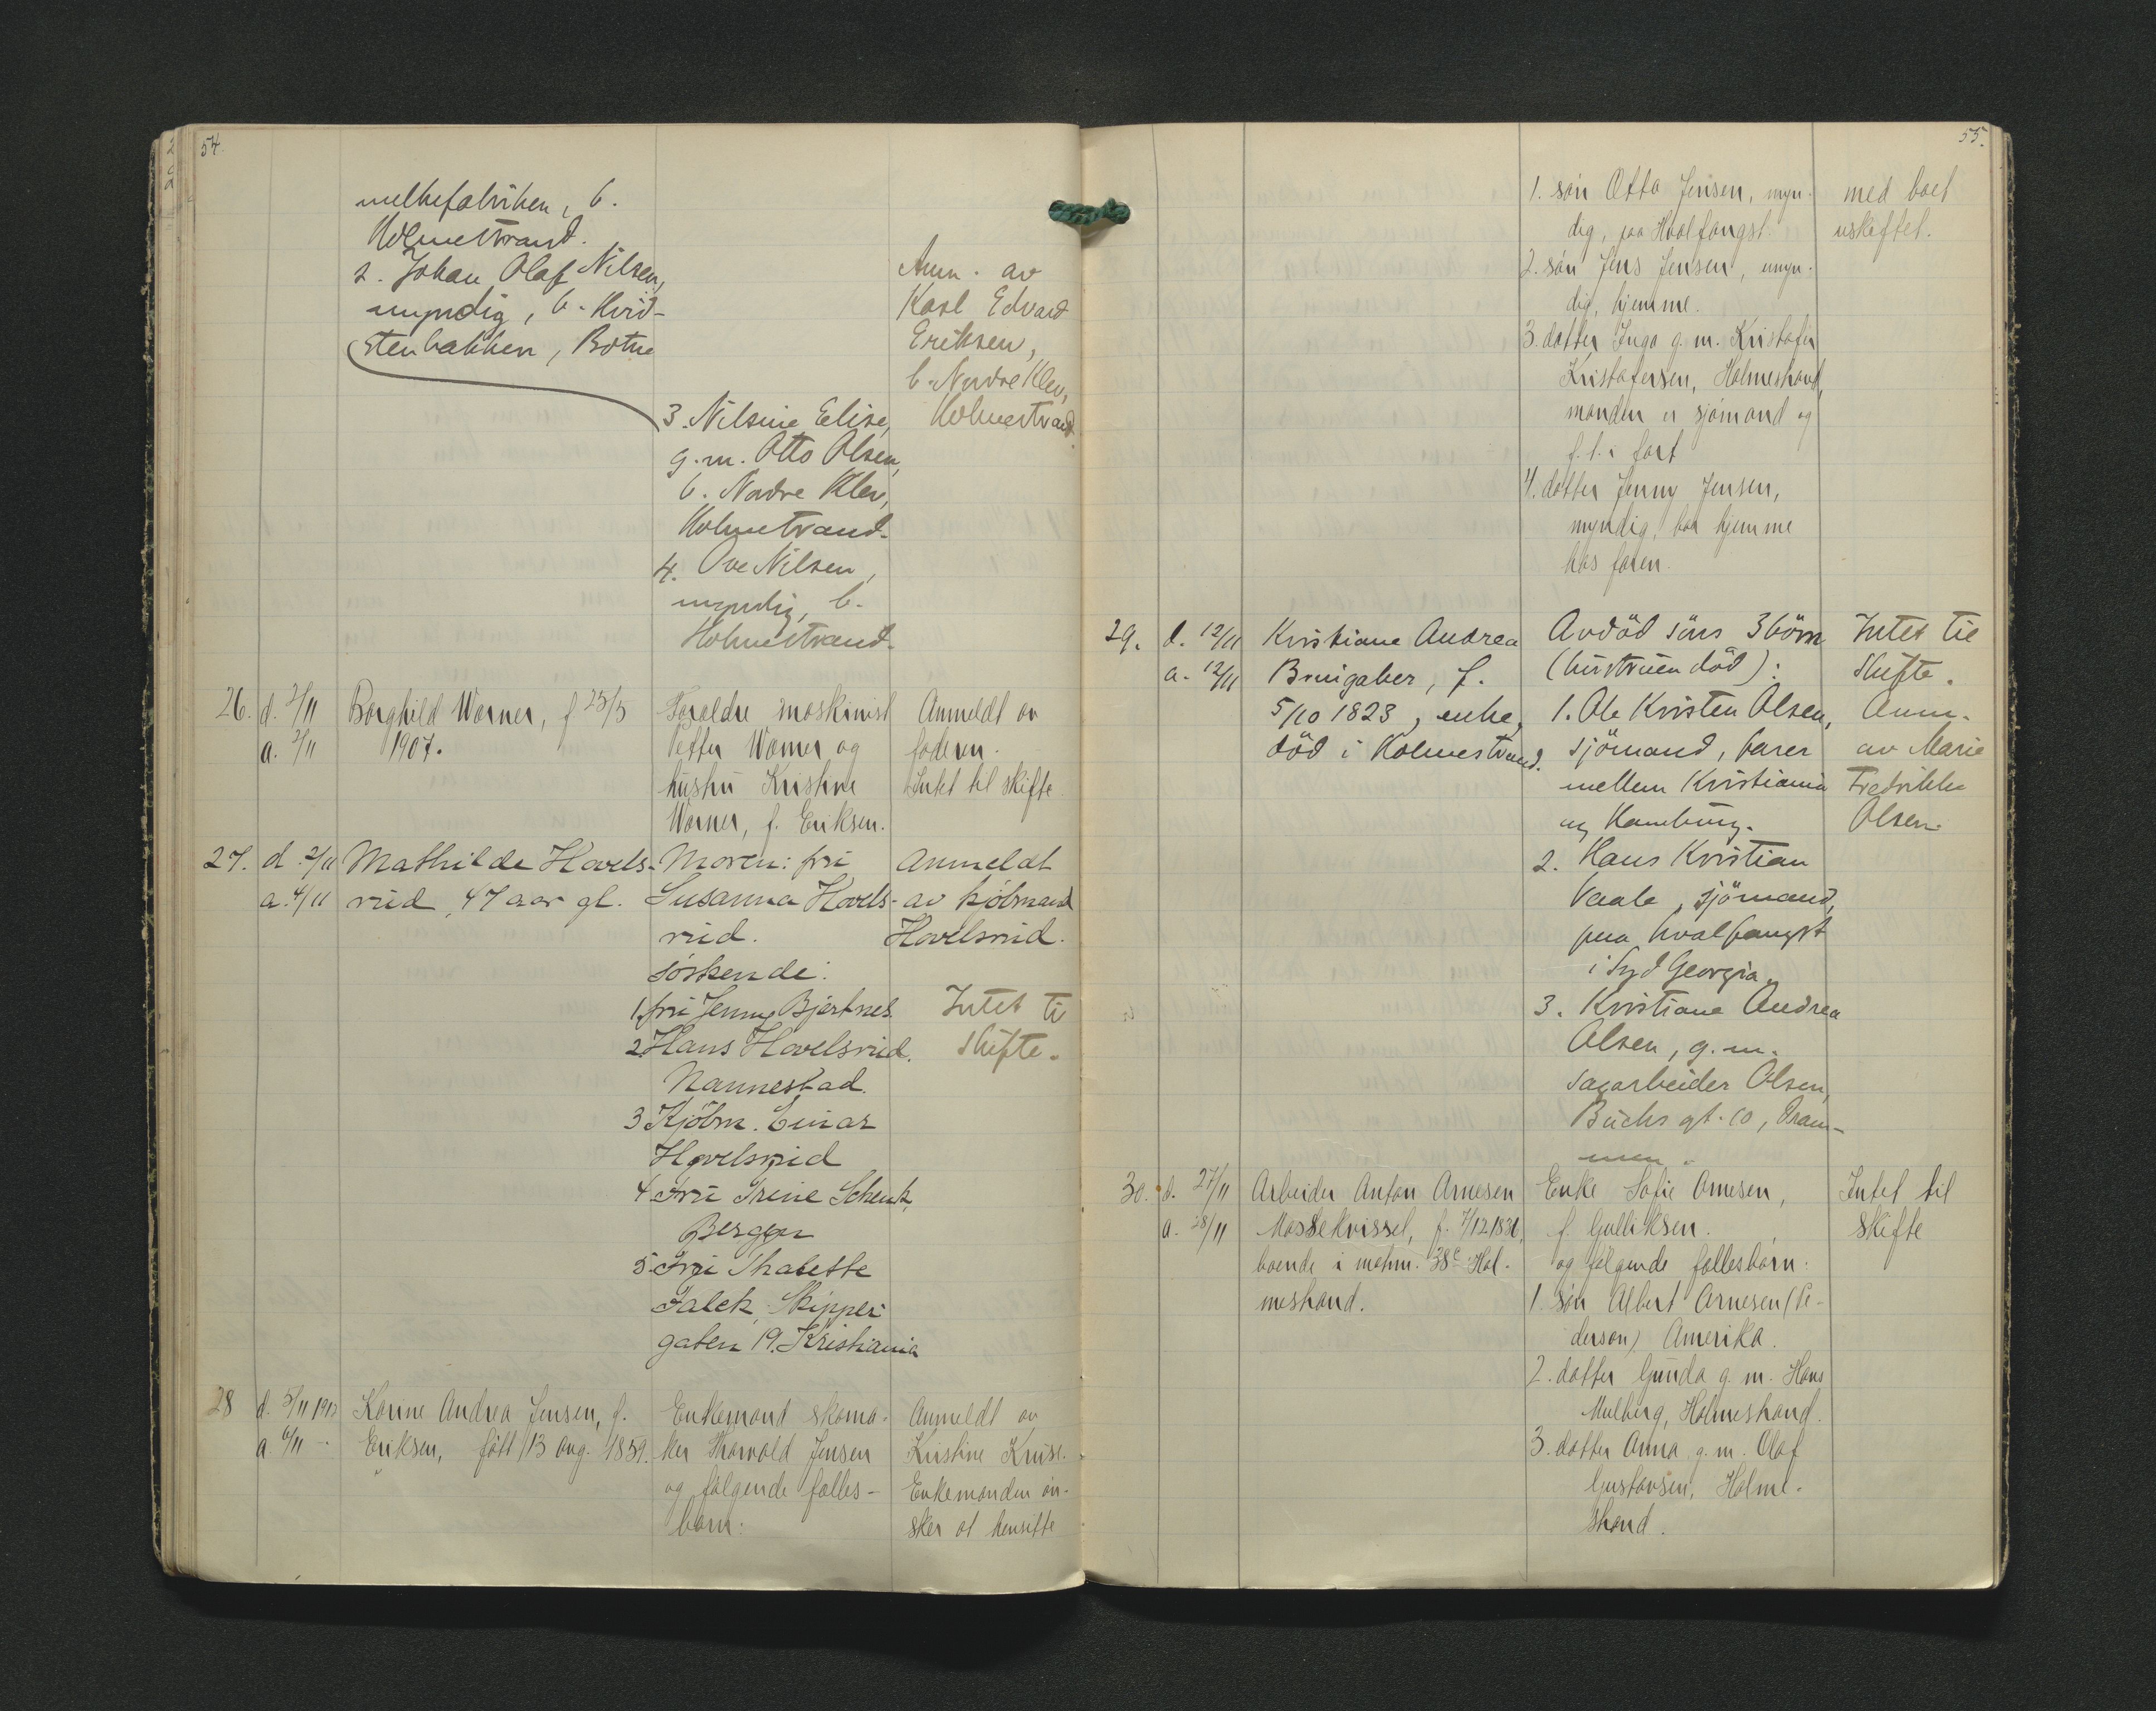 54.
melkefabriken, b.
Holmestrand.
2. Johan Olaf Nilsen,
myndig, b. Hvid-
stenbakken, Botne
Anm. av
Karl Edvard
Eriksen,
b. Nordre Klev,
Holmestrand.
3. Nilsine Elise,
g.m. Otto Olsen,
b. Nordre Klev,
Holmestrand.
4. Ove Nilsen,
myndig, b.
Holmestrand.
26. d. 2/11 Borghild Werner, f 25/5
a. 2/11 1907.
Foraldre maskinist
Petter Werner og
hustru Kristine
Werner, f. Eriksen.
Anmeldt av
faderen.
Intet til skifte.
27. d. 2/11 Mathilde Hovels-
a. 4/11 rud, 47 aar gl.
Moren: fru
Susanna Hovels-
rud.
söskende:
1. fru Jenny Bjertnes.
2. Hans Hovelsrud.
Nannestad.
3 Kjöbm. Einar
Hovelsrud
4 Fru Trine Schenk,
Bergen
5. Fru Thalette
Falck, Skipper
gaten 19. Kristiania
Anmeldt
av kjöbmand
Hovelsrud.
Intet til
Skifte.
28 d. 5/11 1913 Karine Andrea Jensen, f.
a. 6/11 - Eriksen, fött 13 aug. 1859.
Enkemand skoma-
ker Thorvald Jensen
og fölgende fælles-
barn:
Anmeldt av
Kristine Kruse.
Enkemanden ön-
sker at hensitte
55.
1. sön Otto Jensen, myn-
dig, paa Hvalfangst.
2. sön Jens Jensen, myn-
dig, hjemme.
3. datter Inga g. m. Kristofer
Kristofersen, Holmestrand,
manden er sjömand og
f. t. i fart
4. datter Jenny Jensen,
myndig, bor hjemme
hos faren.
med boet
uskiftet.
29. d. 12/11 Kristiane Andrea
a. 12/11 Bruigaber, f.
5/10 1823, enke,
död i Holmestrand.
Avdöd söns 3 börn
(hustruen död):
1. Ole Kristen Olsen,
sjömand, farer
mellem Kristiania
og Hamburg.
2. Hans Kristian
Vaale, sjömand,
paa hvalfangst
i Syd Georgia.
3. Kristiane Andrea
Olsen, g. m.
sagarbeider Olsen,
Buchs gt. 10, Dram-
men.
Intet til
Skifte.
Anm.
av Marie
Fredrikke
Olsen.
30. d. 27/11 Arbeider Anton Arnesen
a. 28/11 Massekvissel, f. 7/12 1836,
boende i matrn. 38c Hol-
mestrand.
Enke Sofie Arnesen,
f. Gulliksen.
og fölgende fallesbarn:
1. sön Albert Arnesen (Pe-
derson) Amerika.
2. datter Gunda g. m. Hans
Mulberg, Holmestrand.
3. datter Anna g. m. Olaf
Gustavsen, Holme-
strand.
Intet til
skifte